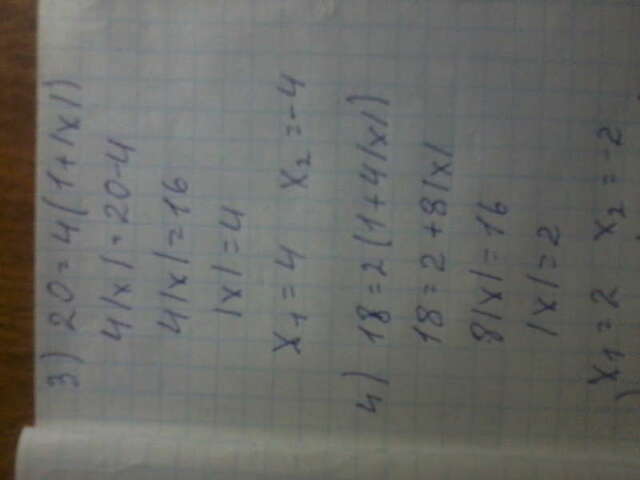 3) 20=4(1+|x|)
4|x|=20-4
4|x|=16
|x|=4
x₁=4 x₂=-4
4) 18=2(1+4|x|)
18=2+8|x|
8|x|=16
|x|=2
x₁=2 x₂=-2